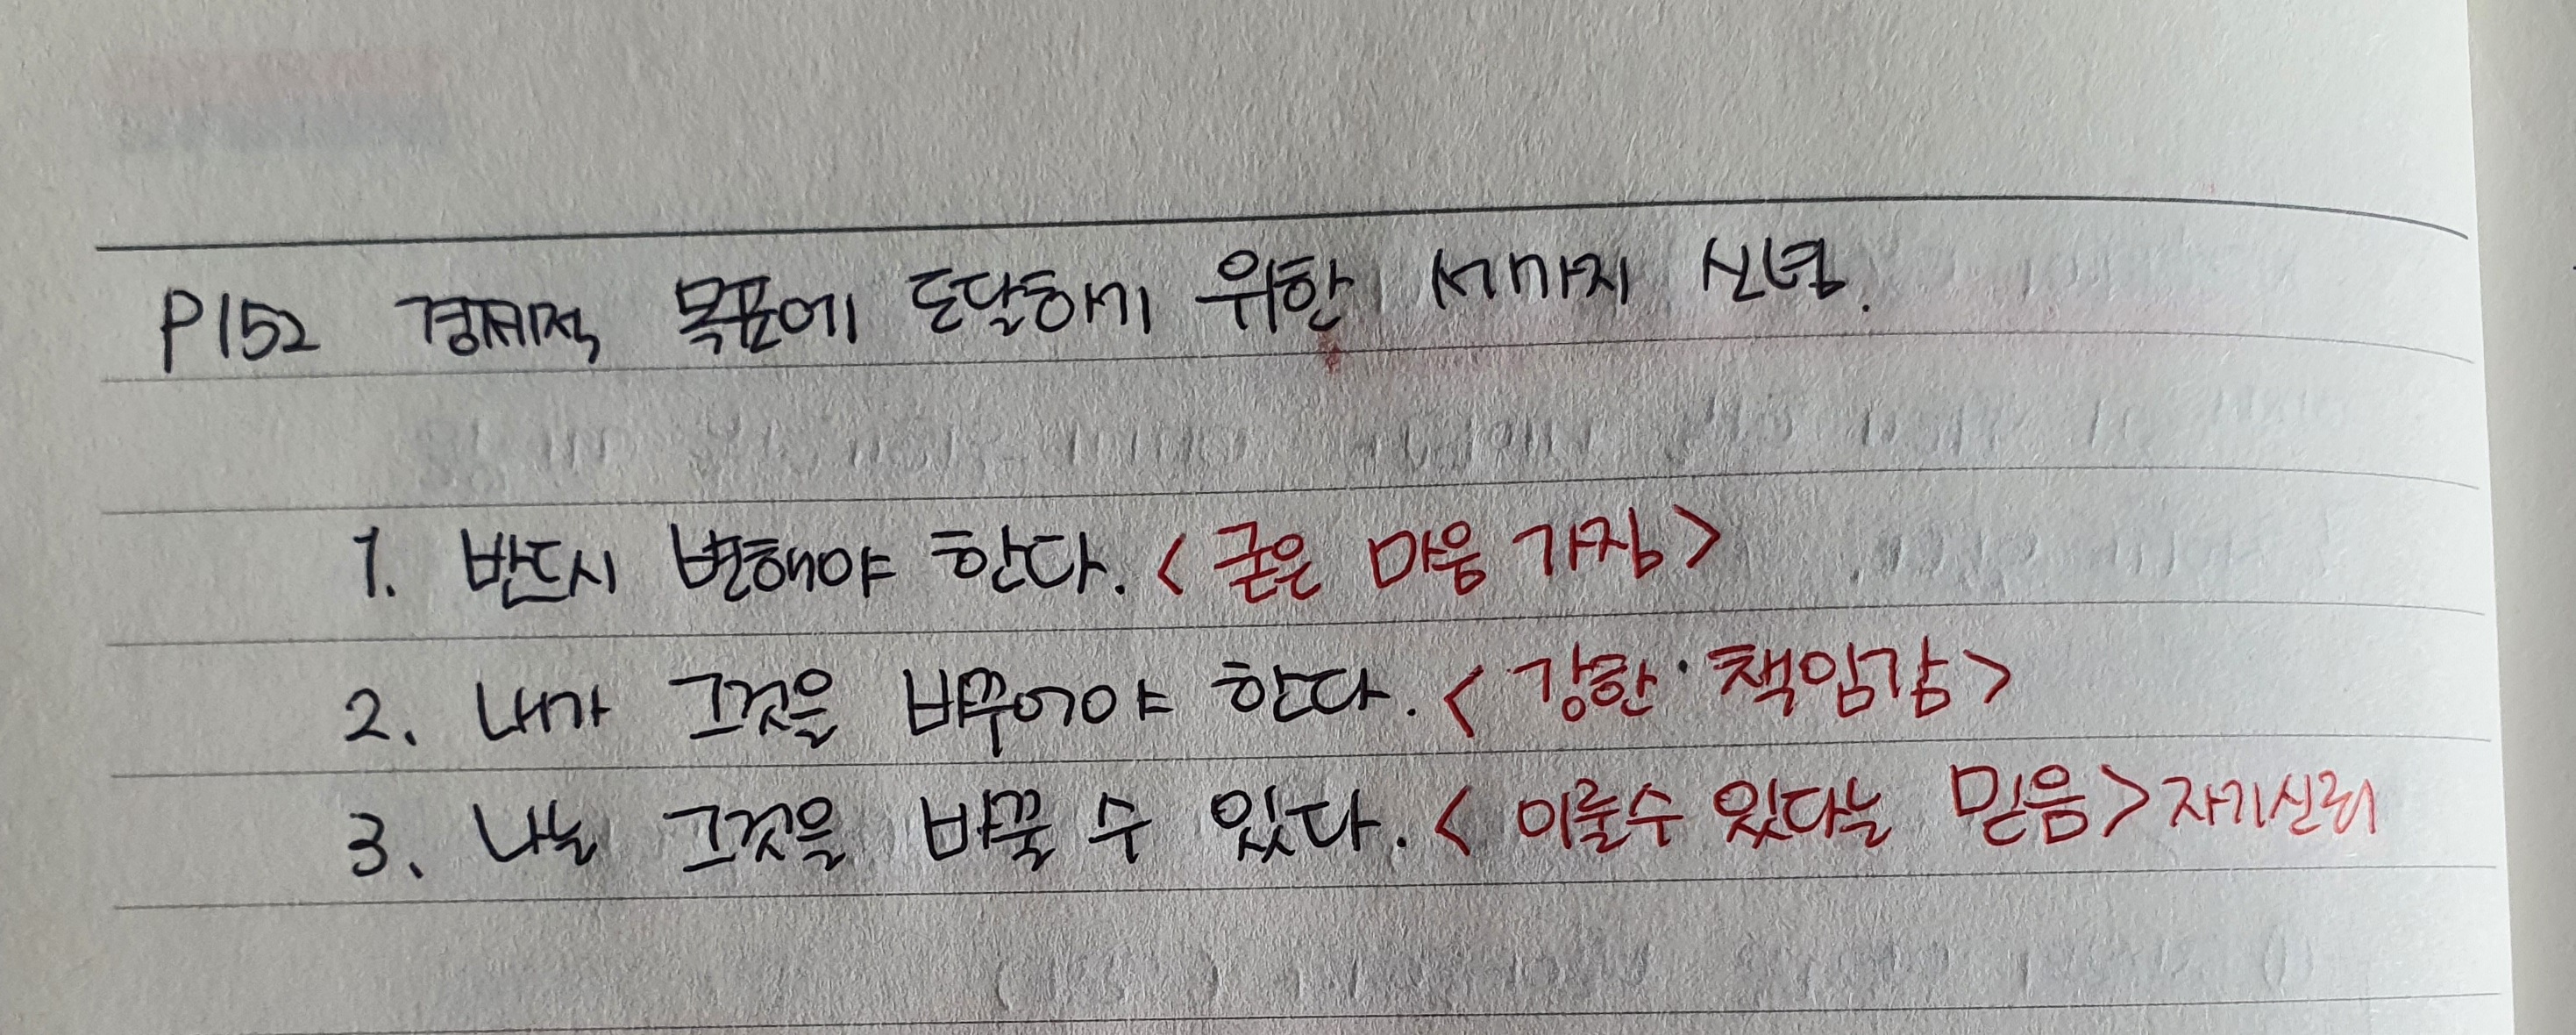 P152 경제적 목표에 도달하기 위한 세가지 신념.
1. 반드시 변해야 한다. < 굳은 마음 가짐 >
2. 내가 그것을 바꾸어야 한다. < 강한 책임감 >
3. 나는 그것을 바꿀 수 있다. < 이룰수 있다는 믿음 > 자기신뢰